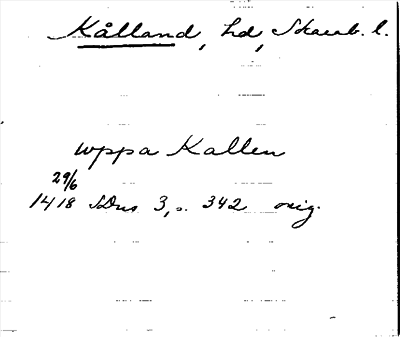 Kålland, hd, Skarab. l.
uppa Kallen
29/6
1418 SDns 3, s. 342 orig.